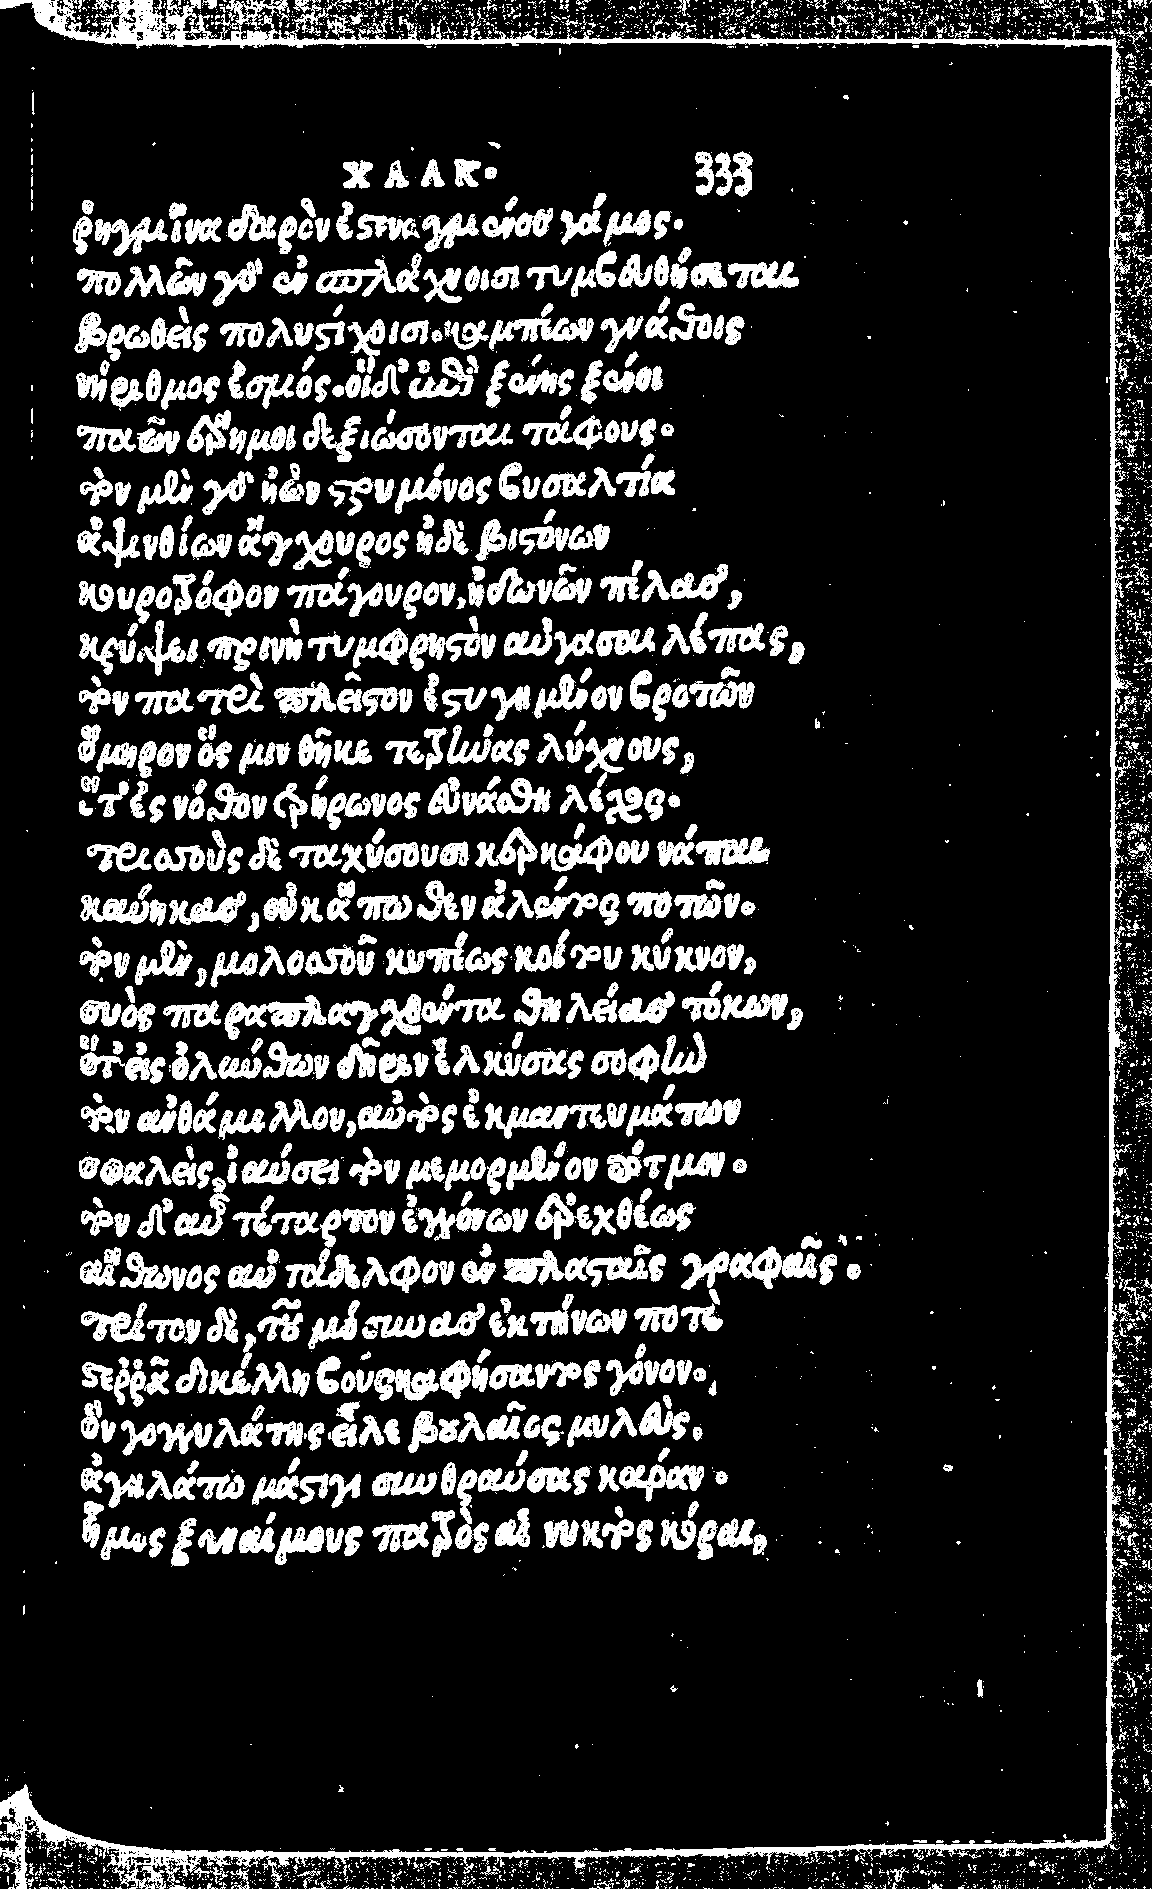 ΧΑΛΚ. 333
ῥηγμῖνα δαρὸν ἐστεναγμένου γάμος.
πολλῶν γὰρ ἐν σπλάγχνοισι τυμβευθήσεται
βρωθεὶς πολυστίχοισι. καμπέων γνάθοις
νήριθμος ἑσμός. οἵ δ' ἐπὶ ξένης ξένοι
παῶν ἔρημοι δεξιώσονται τάφους.
τὸν μὲν γὰρ ἠιὼν στρυμόνος βυσαλτία
ἀψινθίων ἄγχουρος ἠδὲ βιστόνων
κουροτρόφον πάγουρον, ἠδωνῶν πέλας,
κρύψει πρινὴ τυμφρηστὸν αὐγάσαι λέπας,
τὸν πατρὶ πλεῖστον ἐστυγημένον βροτῶν
ὅμηρον ὅς μιν θῆκε τετρήνας λύχνους,
ὅτ' ἐς νόθον τρήρωνος εὐνάσθη λέχος.
τρισσοὺς δὲ ταχύσουσι κερκάφου νάπαι
καύηκας, οὐκ ἄπωθεν ἀλέντος ποτῶν.
τὸν μὲν, μολοσσοῦ κυπέως κοίτου κύκνον,
συὸς παραπλαγχθέντα θηλείας τόκων,
ὅτ' εἰς ὀλύνθων δῆριν ἑλκύσας σοφὴν
τὸν ἀνθάμιλλον, αὐτὸς ἐκμαντευμάτων
σφαλεὶς, ἰαύσει τὸν μεμορμένον πότμον.
τὸν δ' αὖ τέταρτον ἐγγόνων ἐρεχθέως
αἴθωνος αὐτάδελφον ἐν πλασταῖς γραφαῖς.
τρίτον δὲ, τοῦ μόσσυνας ἐκτήνων ποτὲ
στερῤᾷ δικέλλῃ βουσκαφήσαντος γόνον.
ὃν γογγυλάτης εἷλε βουλαῖος μυλεὺς,
ἀγηλάτῳ μάστιγι συνθραύσας κάραν.
ἦμος ξυναίμους πατρὸς αἱ νυκτὸς κόραι,